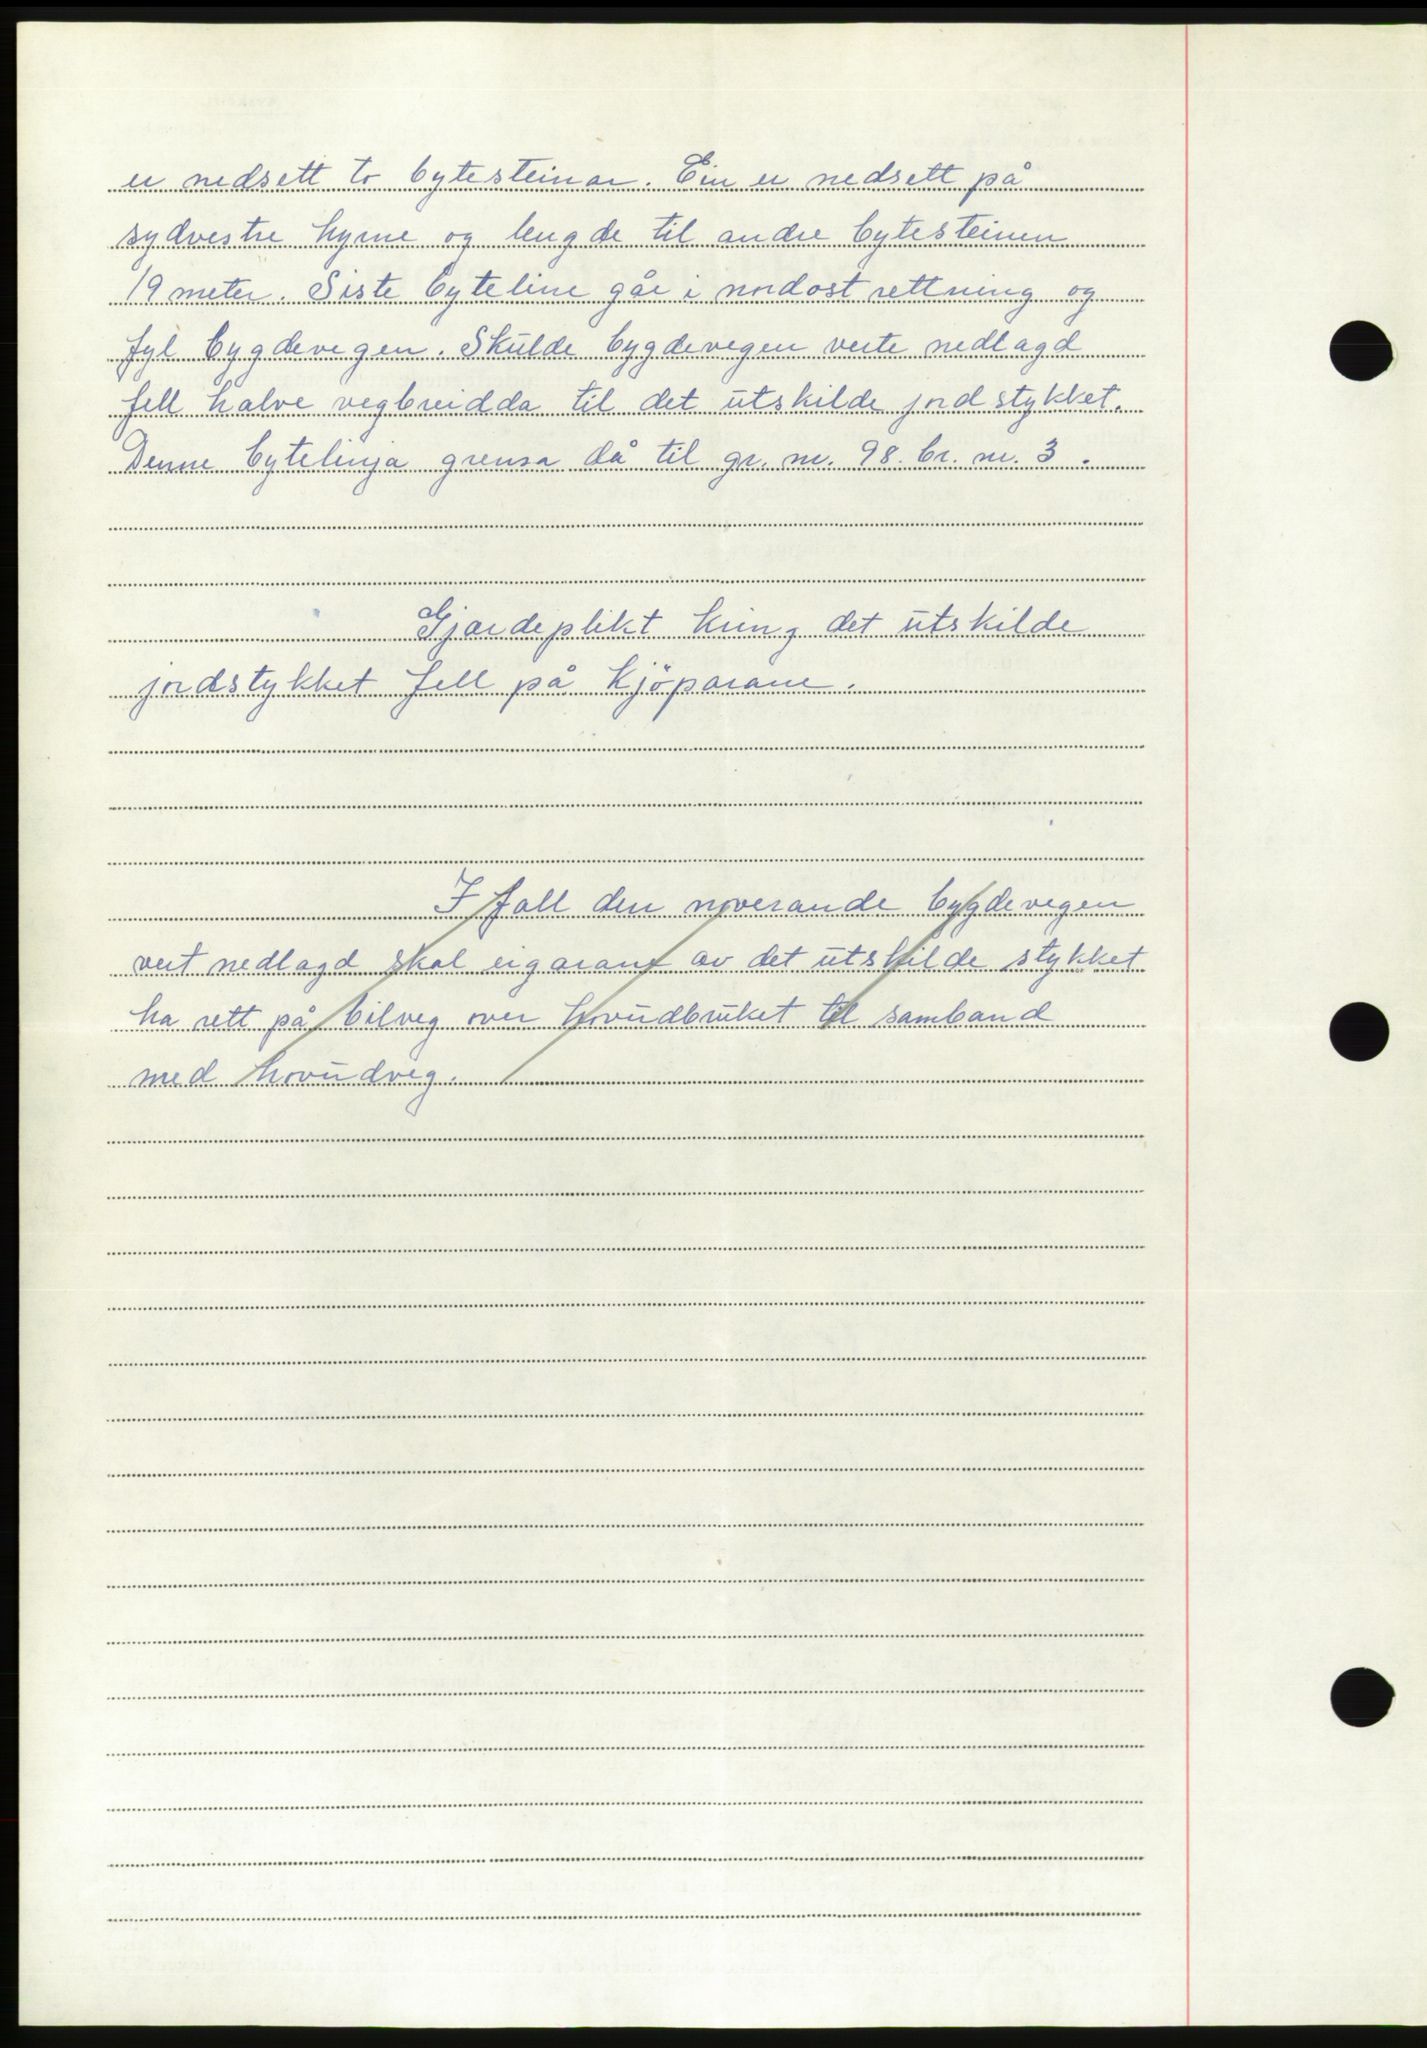 er nedsett to bytesteinar. Ein er nedsett på
sydvestre hyrne og lengde til andre bytesteinen
19 meter. Siste byteline går i nordost rettning og
fyl bygdevegen. Skulde bygdevegen verte nedlagd
fell halve vegbreidda til det utskilde jordstykket.
Denne bytelinja grensa då til gr. nr. 98. br. nr. 3.
Gjærdeplikt kring det utskilde
jordstykket fell på kjöparane.
I fall den noverande bygdevegen
vert nedlagd skal eigarane av det utskilde stykket
ha rett på bilveg over hovudbruket til samband
med hovudveg.